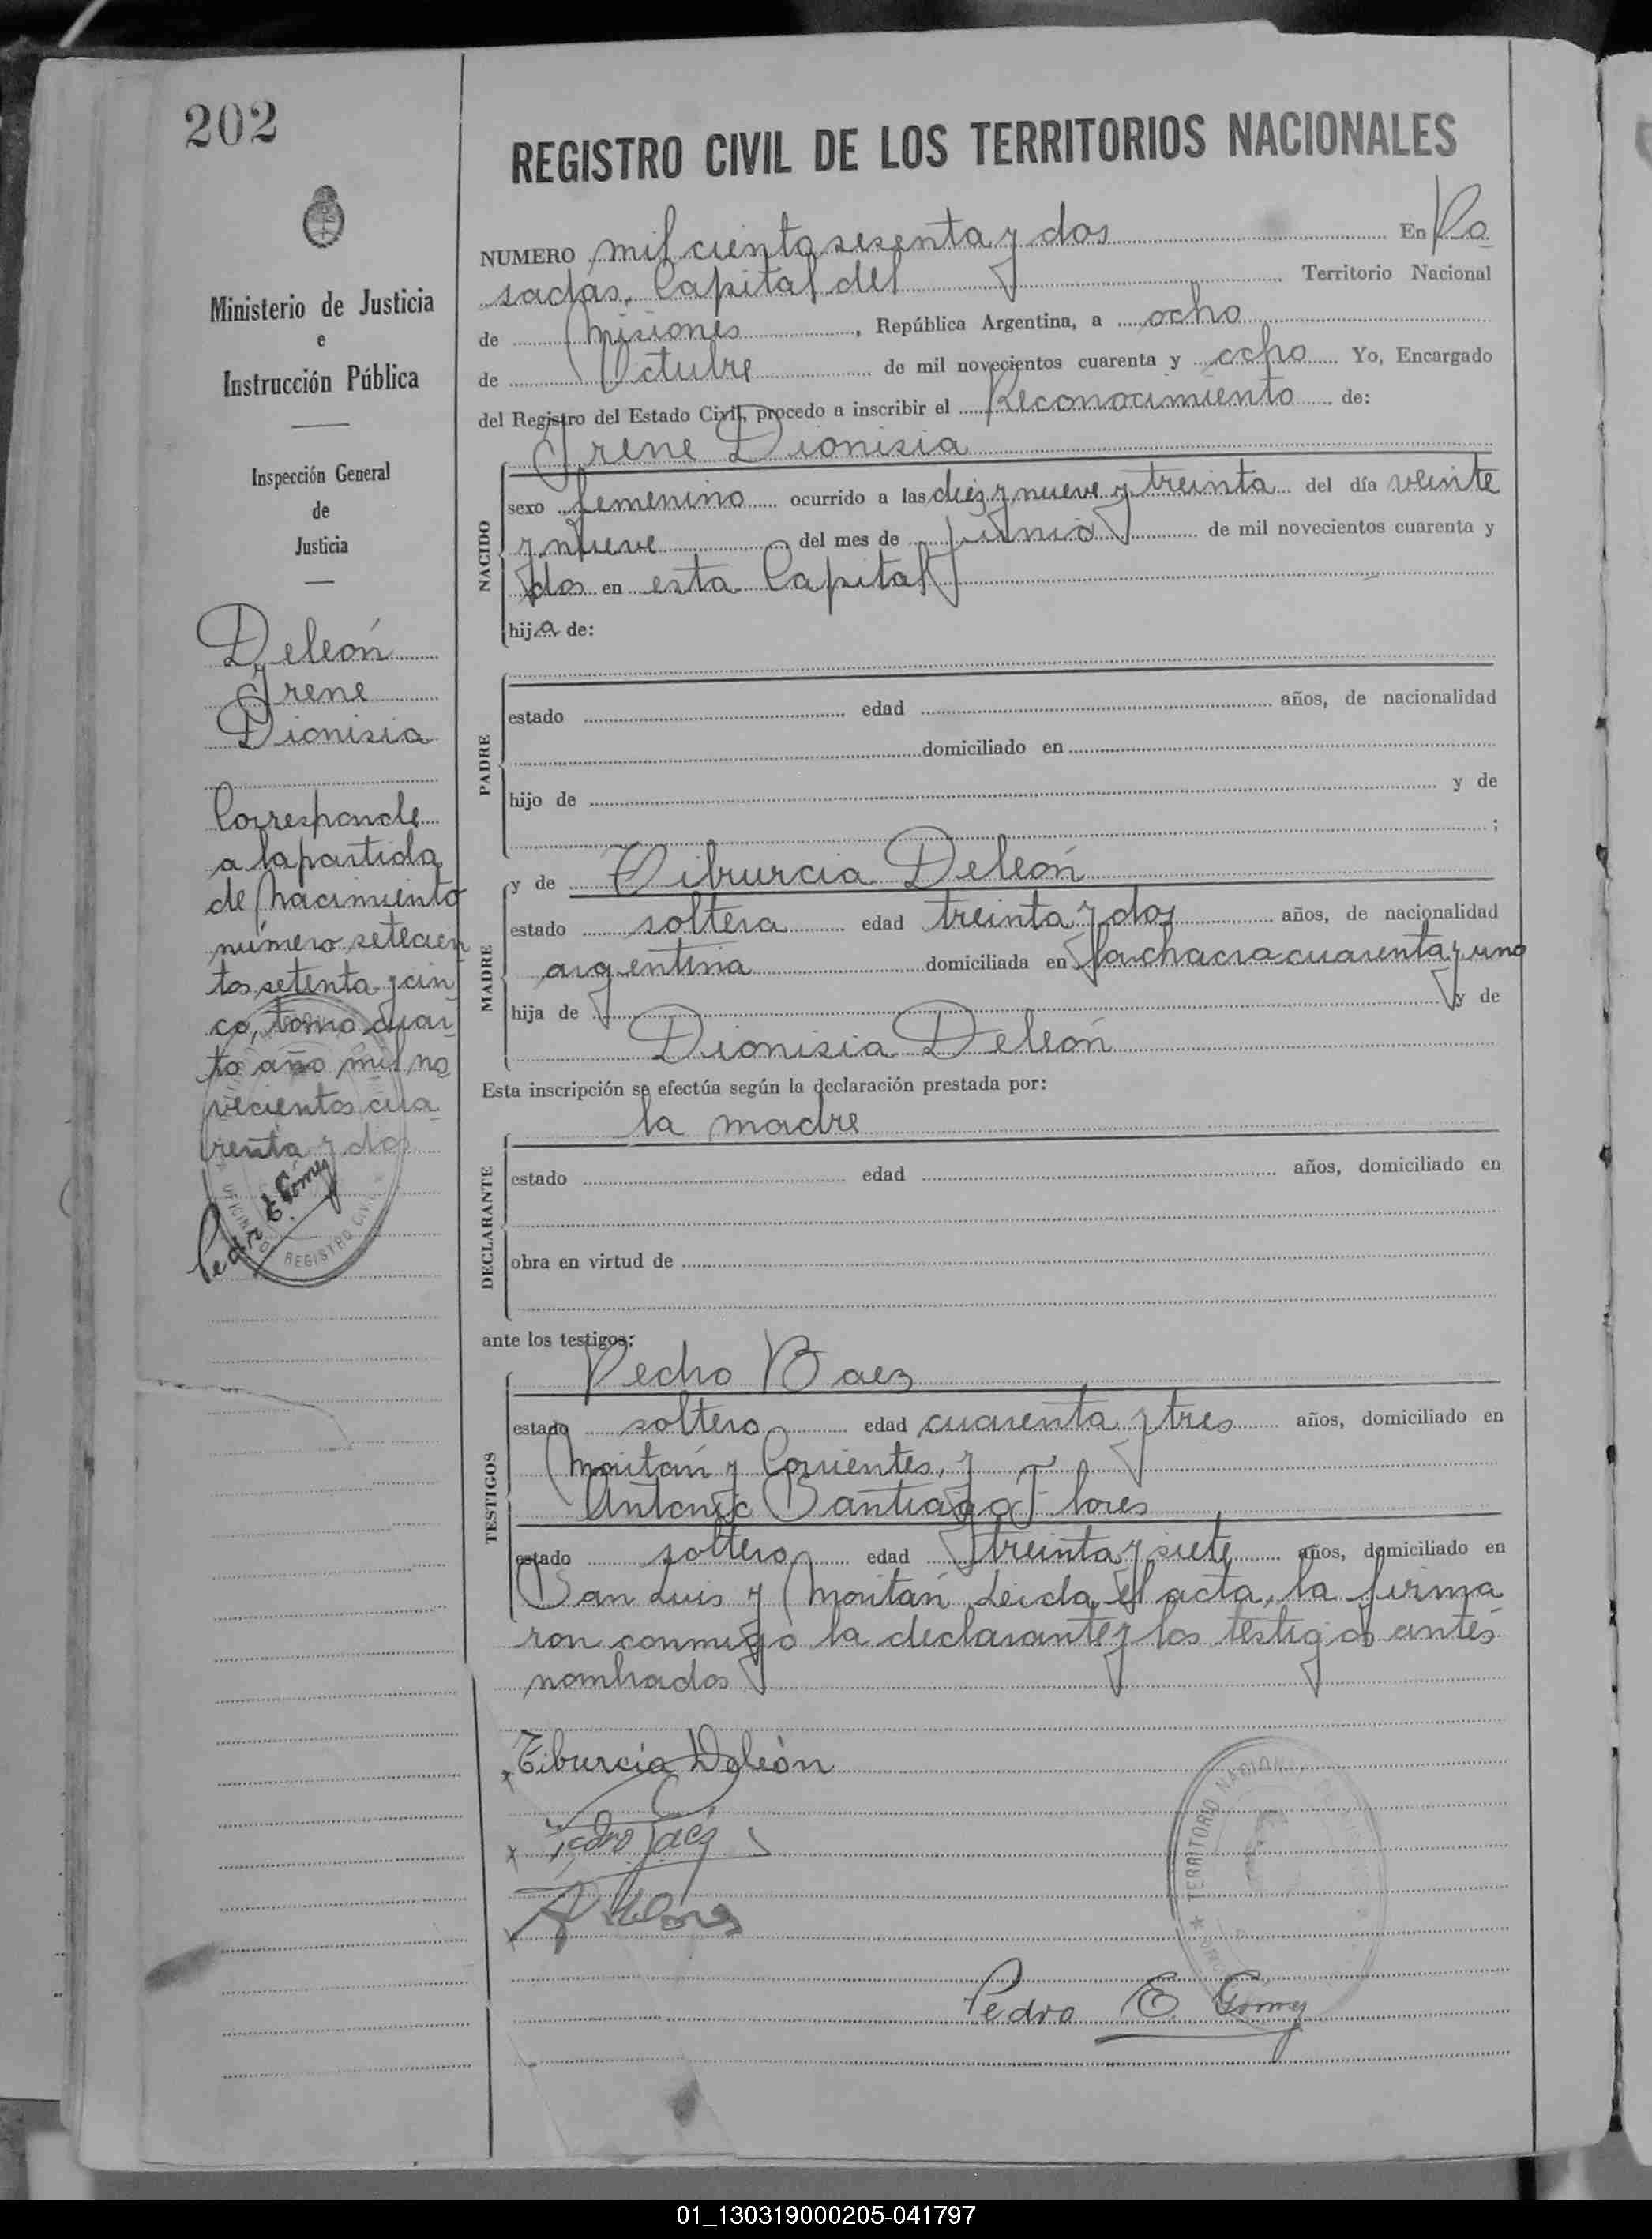 202
REGISTRO CIVIL DE LOS TERRITORIOS NACIONALES
Ministerio de Justicia
e
Instrucción Pública
Inspección General
de
Justicia
Deleón
Irene
Dionisia
Corresponde
a la partida
de nacimiento
número setecien
tos setenta y cin
co, tomo cuar
to año mil no
vecientos cua
renta y dos
Pedro E Gómez
OFICINA REGISTRO CIVIL
NUMERO mil ciento sesenta y dos En Po
sadas, Capital del Territorio Nacional
de Misiones, República Argentina, a ocho
de Octubre de mil novecientos cuarenta y ocho Yo, Encargado
del Registro del Estado Civil, procedo a inscribir el Reconocimiento de:
Irene Dionisia
NACIDO
sexo femenino ocurrido a las diez y nueve y treinta del día veinte
y nueve del mes de junio de mil novecientos cuarenta y
dos en esta Capital
hija de:
PADRE
estado edad años, de nacionalidad
domiciliado en
hijo de y de
;
y de Tiburcia Deleón
MADRE
estado soltera edad treinta y dos años, de nacionalidad
argentina domiciliada en la chacra cuarenta y uno
hija de y de
Dionisia Deleón
Esta inscripción se efectúa según la declaración prestada por:
la madre
DECLARANTE
estado edad años, domiciliado en
obra en virtud de
ante los testigos:
Pedro Baez
TESTIGOS
estado soltero edad cuarenta y tres años, domiciliado en
Moritán y Corrientes, y
Antonio Santiago Flores
estado soltero edad treinta y siete años, domiciliado en
San Luis y Moritán Leida el acta, la firma
ron conmigo la declarante y los testigos antes
nombrados
Tiburcia Deleòn
Pedro Baez
A. Flores
TERRITORIO NACIONAL
Pedro E. Gomez
01_130319000205-041797